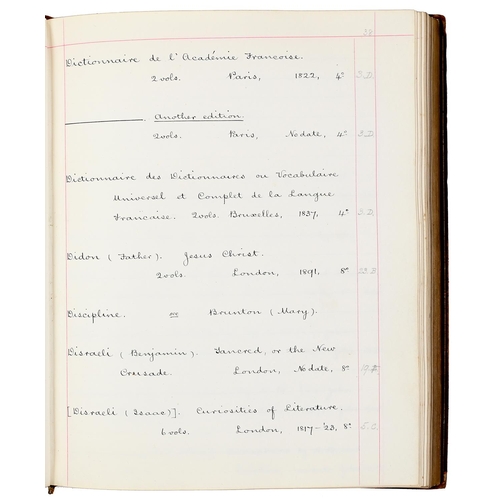 Dictionnaire de l'Académie Francoise.
2 vols. Paris, 1822, 4° 3.D.
Another edition.
2 vols. Paris, No date, 4° 3.D.
Dictionnaire des Dictionnaires ou Vocabulaire
Universel et Complet de la Langue
Francaise. 2 vols. Bruxelles, 1837, 4° 3.D.
Didon (Father). Jesus Christ.
2 vols. London, 1891, 8°
Discipline. Brunton (Mary).
Disraeli (Benjamin). Tancred, or the New
Crusade. London, No date, 8°
[Disraeli (Isaac)]. Curiosities of Literature.
6 vols. London, 1817-'23, 8°